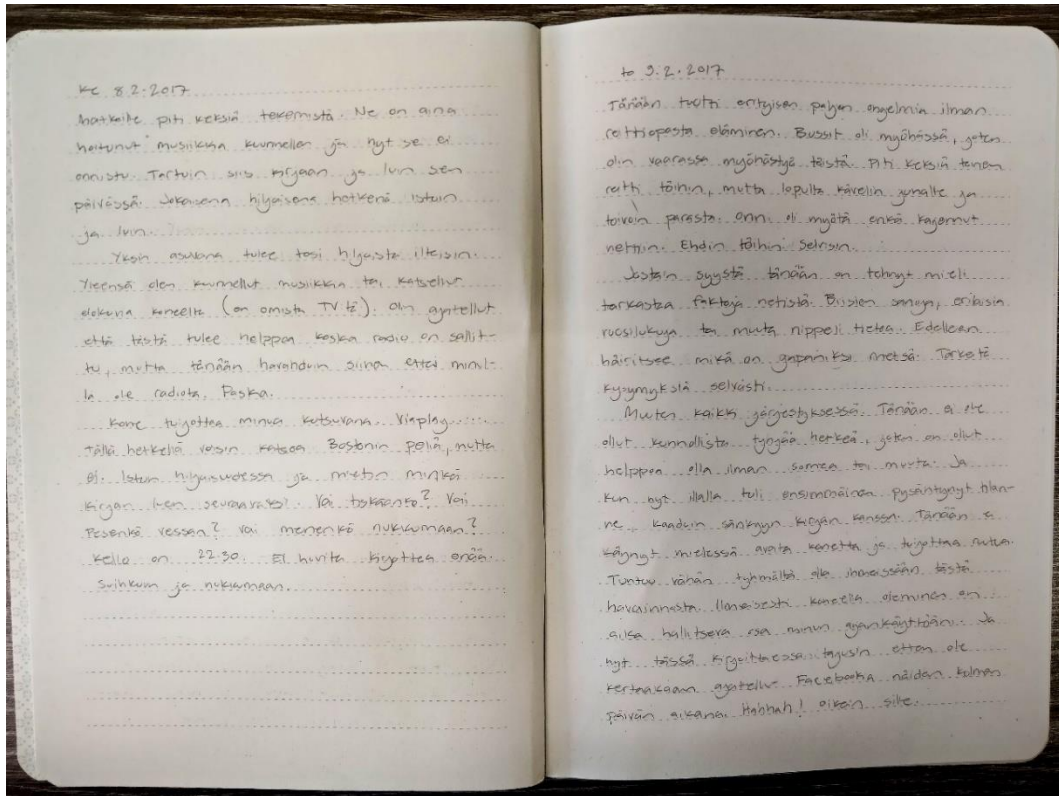 Ke 8.2.2017
Matkoille piti keksiä tekemistä. Ne on aina
hoitunut musiikkia kuunnellen ja nyt se ei
onnistu. Tartuin siis kirjaan ja luin sen
päivässä. Jokaisena hiljaisena hetkenä istuin
ja luin.
Yksin asuvana tulee tosi hiljaista iltaisin.
Yleensä olen kuunnellut musiikkia tai katsellut
dokuna koneelta (en omista TV:tä). Olin ajatellut
että tästä tulee helppoa koska radio on sallit-
tu, mutta tänään havahduin siihen ettei minul-
la ole radiota. Paska.
Kone tuijottaa minua katsovana. Viaplay......
Tällä hetkellä voisin katsoa Bostonin peliä, mutta
ei. Istun hiljaisuudessa ja mietin minkä
kirjan luen seuraavaksi. Vai tiskaanko? Vai
Pesenkö vessan? Vai menenkö nukkumaan?
Kello on 22.30. Ei huvita kirjottaa enää.
Suihkuun ja nukkumaan.
to 9.2.2017
Tänään tuotti erityisen paljon ongelmia ilman
reittiopasta eläminen. Bussit oli myöhässä, joten
olin vaarassa myöhästyä töistä. Piti keksiä toinen
reitti töihin, mutta lopulta kävelin junalle ja
toivoin parasta. Onni oli myötä enkä kajonnut
nettiin. Ehdin töihin selvisin.
Jostain syystä tänään on tehnyt mieli
tarkastaa faktoja netistä. Biisien sanoja, erilaisia
vuosilukuja tai muuta nippeli tietoa. Edelleen
häiritsee mikä on japaniksi metsä. Tärkeitä
kysymyksiä selvästi.
Muuten kaikki järjestyksessä. Tänään ei ole
ollut kunnollista tyhjää hetkeä, joten on ollut
helppoa olla ilman somea tai muuta. Ja
kun nyt illalla tuli ensimmäinen pysähtynyt tilan-
ne, kaaduin sänkyyn kirjan kanssa. Tänään ei
käynyt mielessä avata konetta ja tuijottaa ruutua.
Tuntuu vähän tyhmältä olla ihmeissään tästä
havainnosta. Ilmeisesti koneella oleminen on
aika hallitseva osa minun ajankäyttöäni. Ja
nyt tässä kirjoittaessa tajusin etten ole
kertaakaan ajatellut Facebookia näiden kolmen
päivän aikana. Hahhah! Oikein sille.